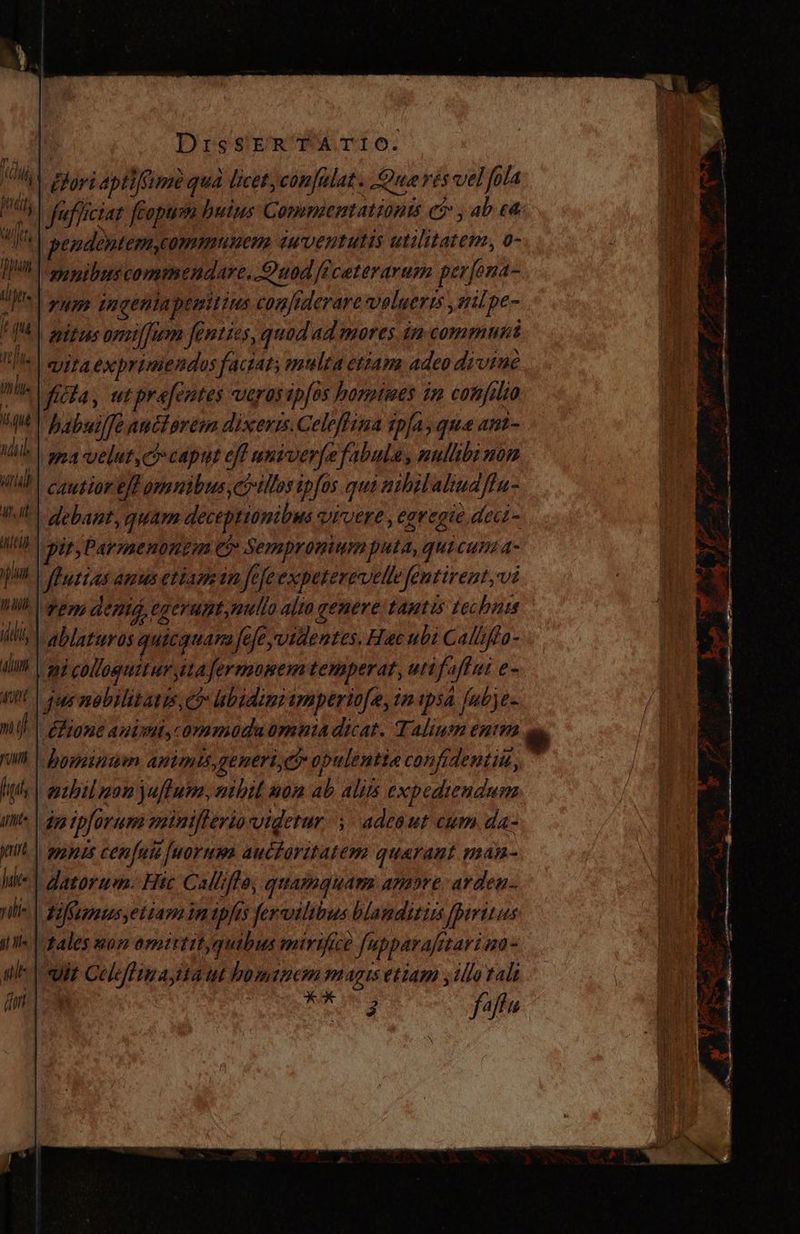 DISSERTATIO.
ctori aptissimè quà licet, consulat. Quæ res vel sola
sufficiat scopum huius Commentationis & , ab eâ
pendentem, communem iuventutis utilitatem, o-
mnibus commendare. Quod si ceterarum persona-
rum ingenia penitius considerare volueris , nil pe-
nitus omissum senties, quod ad mores in communi
vita exprimendos faciat; multa etiam adeo divine
ficta, ut præsentes veros ipsos homines in consilio
habuisse auctorem dixeris. Celestina ipsa, quæ ani-
ma velut, & caput est universæ fabulæ, nullibi non
cautior est omnibus, & illos ipsos qui nihil aliud stu-
debant, quam deceptionibus vivere, egregie deci-
pit, Parmenonem & Sempronium puta, qui cum a-
stutias anus etiam in sese expetere velle sentirent, vi
rem deniq, egerunt, nullo alio genere tantis technis
ablaturos quicquam sese, videntes. Hæc ubi Callisto-
ni colloquitur, ita sermonem temperat, uti fastui e-
jus nobilitatis, & libidini imperiosæ, in ipsâ subje-
ctione animi, commodu omnia dicat. Talium enim
hominum animis, generi, & opulentiæ confidentiū,
nihil non justum, nihil non ab aliis expediendum
in ipsorum ministerio videtur ; adeo ut cum da-
mnis censuū suorum auctoritatem quærant man-
datorum. Hic Callisto, quamquam amore arden-
tissimus, etiam in ipsis servilibus blanditiis spiritus
tales non omittit, quibus mirificè suppurasitari no-
vit Celestina, ita ut hominem magis etiam , illo tali
** 3 fastu